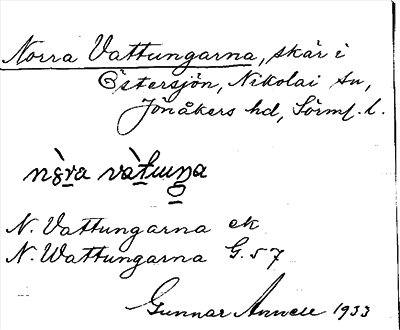 Norra Vattungarna, skär i
Östersjön, Nikolai sn,
Jönåkers hd, Sörml. l.
N. Vattungarna ek
N. Wattungarna G. 57
Gunnar Annell 1933